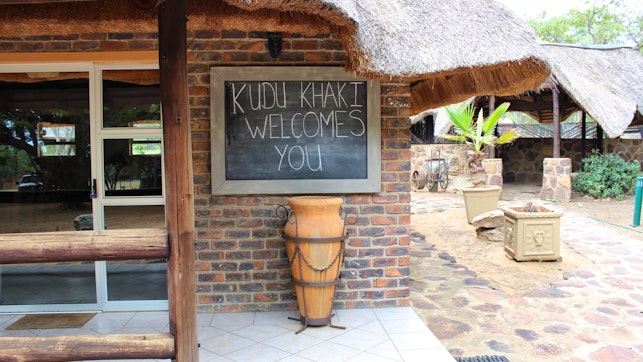 KUDU KHAKI
WELCOMES
YOU